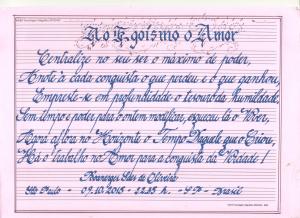 Do Egoísmo o Amor
Centralize no seu ser o máximo de poder,
Anote a cada conquista o que perdeu e o que ganhou,
Empreste-se em profundidade o tesouro da humildade,
Sem tempo e poder para o ontem modificar, esqueceu lá o Viver,
Agora aflora no Horizonte o Tempo Daquele que o Criou,
Há o Trabalho no Amor para a conquista da Verdade!
de Oliveira
São Paulo - 09.10.2015 - 22:35 h. - S.P. - Brasil